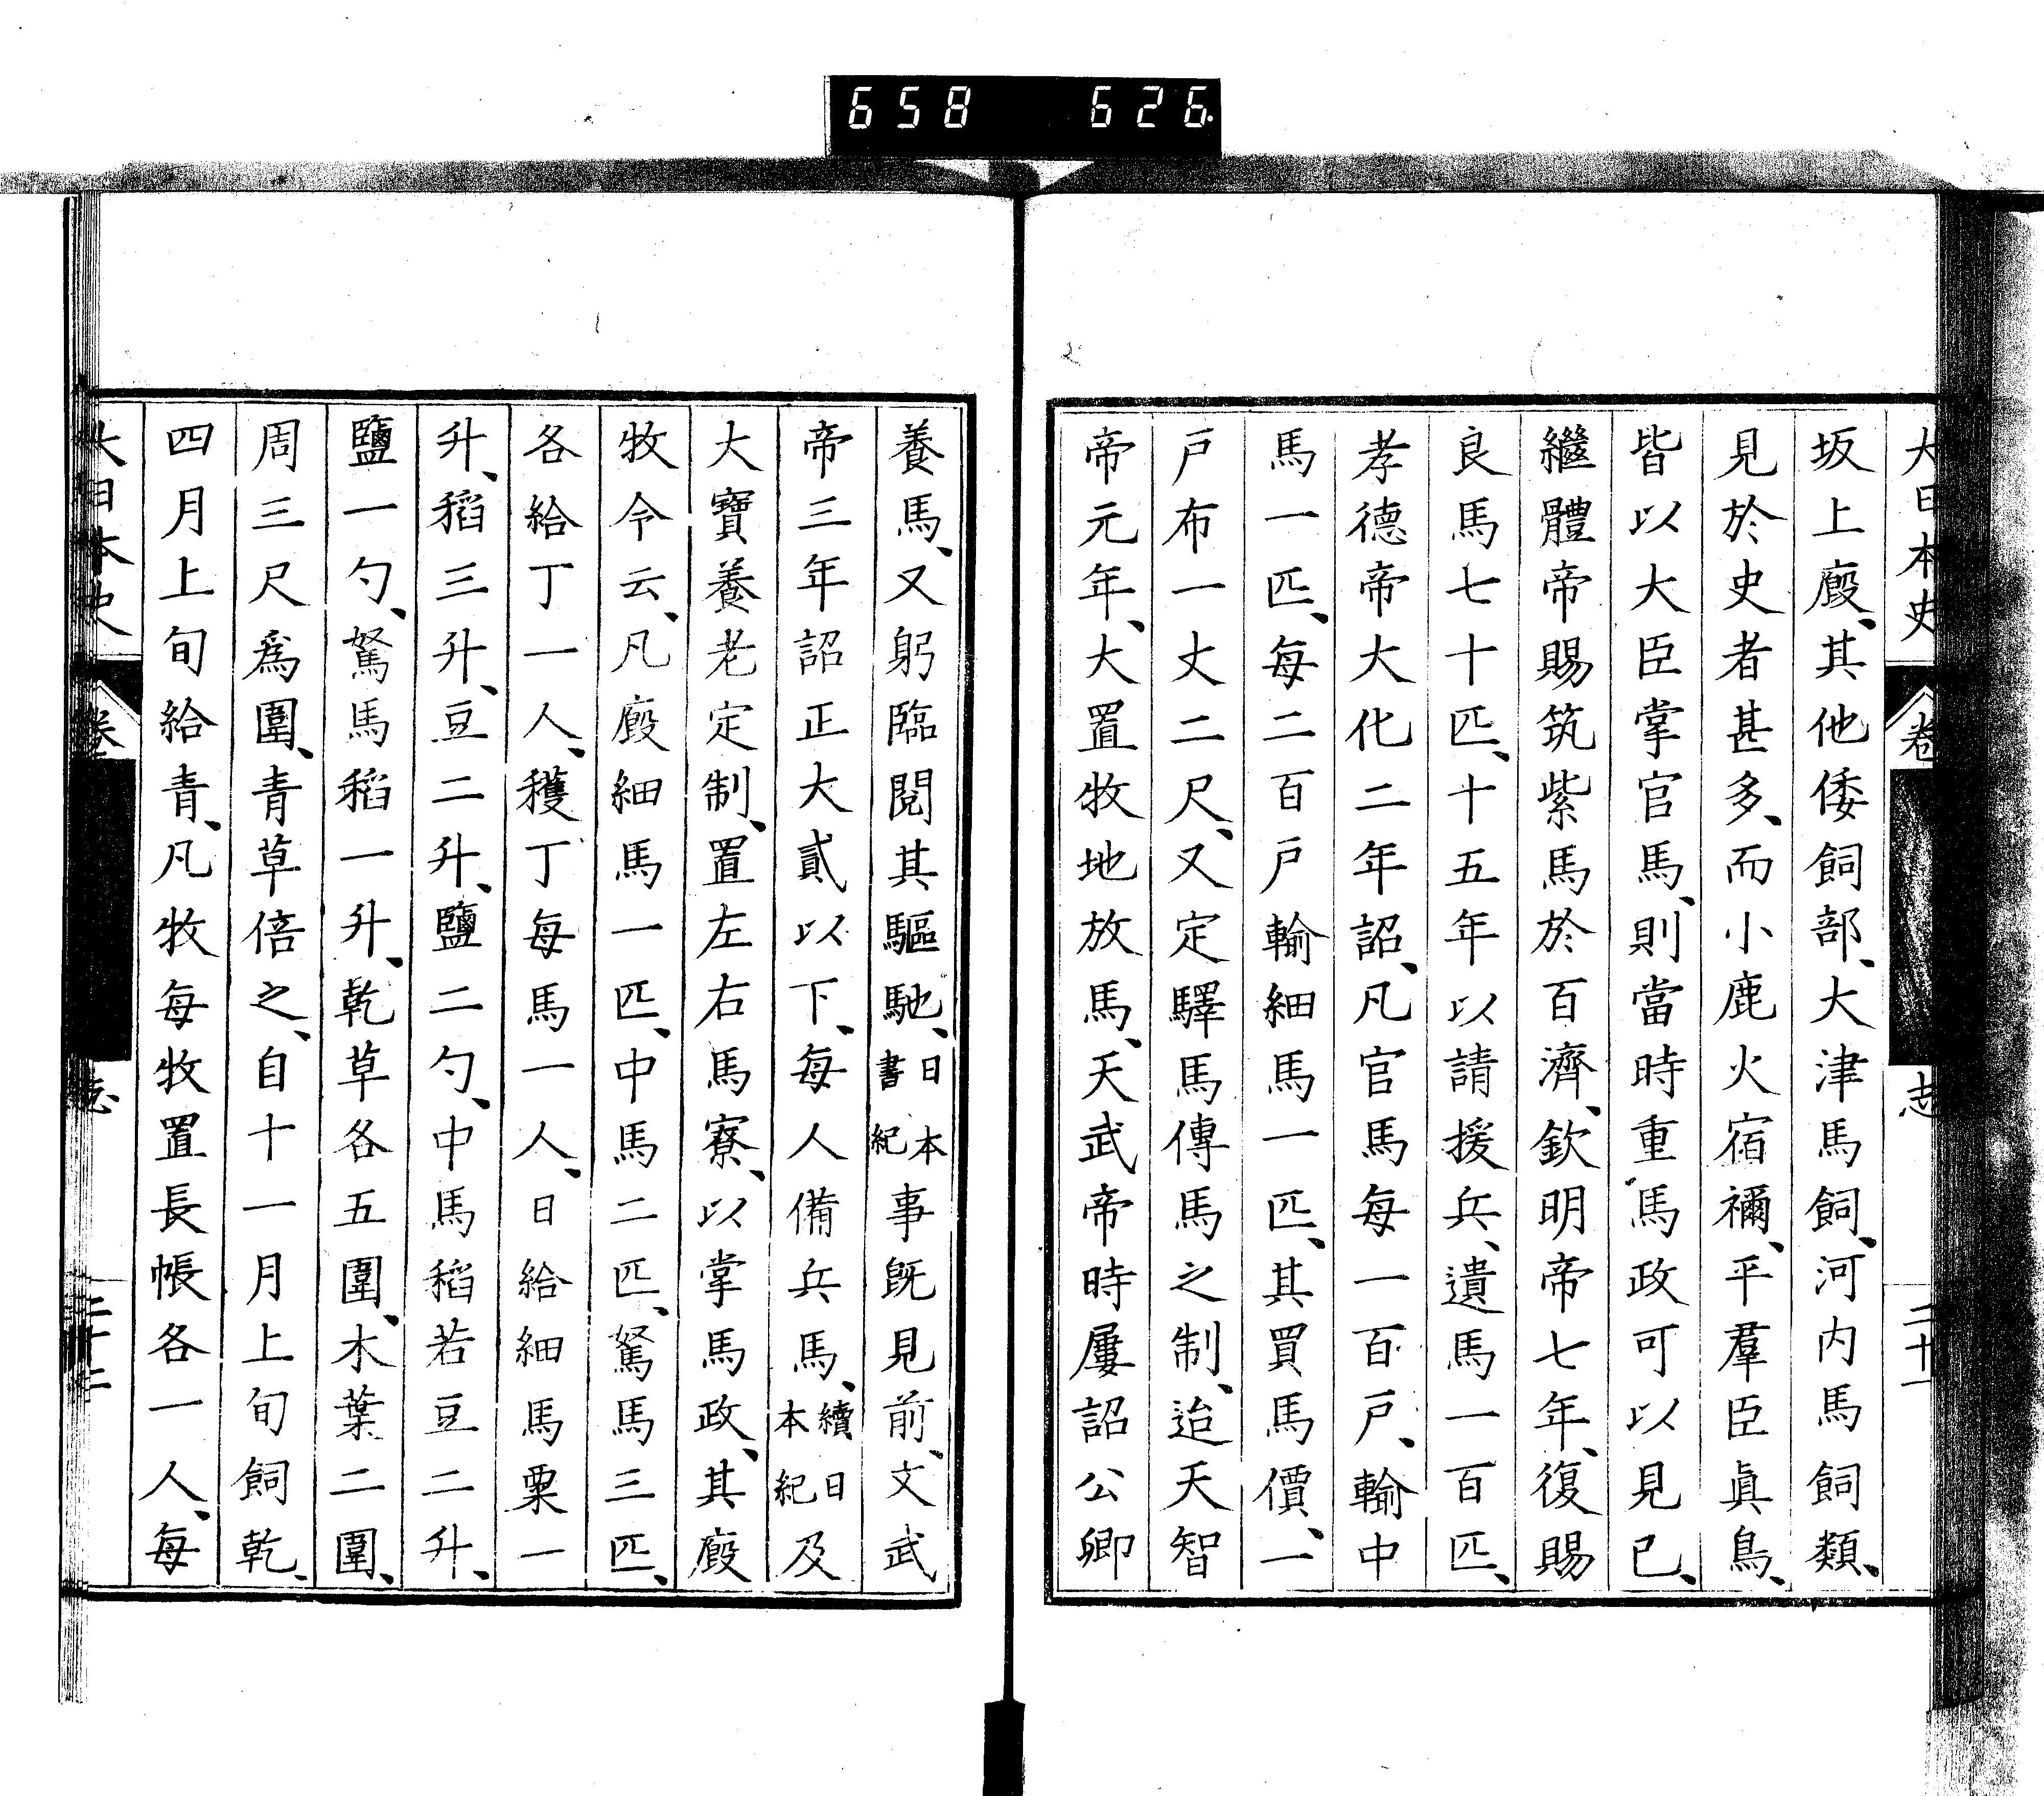 658 626
大日本史 卷 志 二十一
坂上廏、其他倭飼部、大津馬飼、河内馬飼類、
見於史者甚多、而小鹿火宿禰、平羣臣眞鳥、
皆以大臣掌官馬、則當時重馬政可以見已、
繼體帝賜筑紫馬於百濟、欽明帝七年、復賜
良馬七十匹、十五年以請援兵、遺馬一百匹、
孝德帝大化二年詔、凡官馬每一百戸、輸中
馬一匹、每二百戸輸細馬一匹、其買馬價、一
戸布一丈二尺、又定驛馬傳馬之制、迨天智
帝元年、大置牧地放馬、天武帝時屢詔公卿
養馬、又躬臨閱其驅馳、日本書紀事旣見前、文武
帝三年詔正大貳以下、每人備兵馬、續日本紀及
大寶養老定制、置左右馬寮、以掌馬政、其廏
牧令云、凡廏細馬一匹、中馬二匹、駑馬三匹、
各給丁一人、穫丁每馬一人、日給細馬粟一
升、稻三升、豆二升、鹽二勺、中馬稻若豆二升、
鹽一勺、駑馬稻一升、乾草各五圍、木葉二圍、
周三尺爲圍、青草倍之、自十一月上旬飼乾、
四月上旬給青、凡牧每牧置長帳各一人、每
大日本史 卷 志 二十二